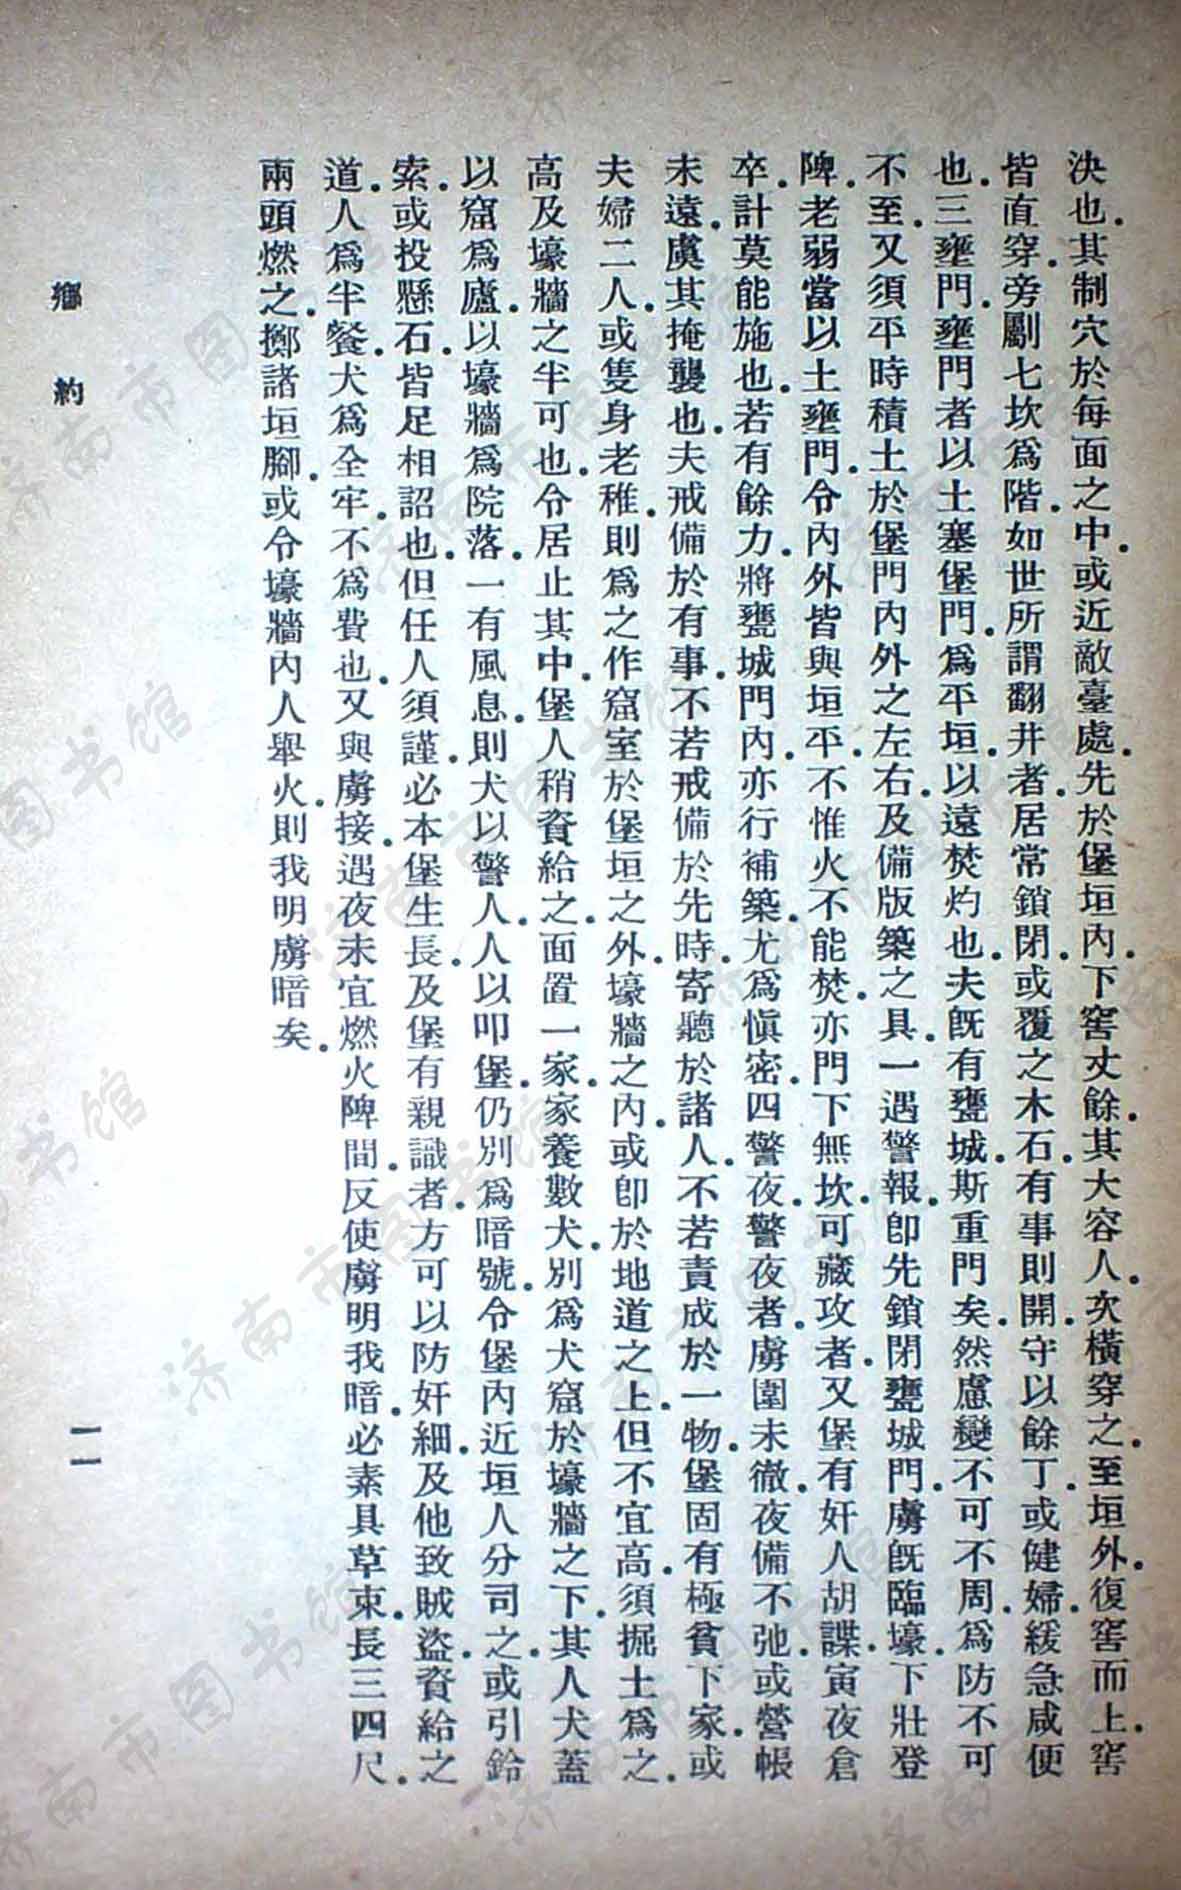 決也.其制穴於每面之中.或近敵臺處.先於堡垣內.下窖丈餘.其大容人.次橫穿之.至垣外.復窖而上.窖
皆直穿.旁劚七坎爲階.如世所謂翻井者.居常鎖閉.或覆之木石.有事則開.守以餘丁.或健婦.緩急咸便
也.三壅門.壅門者以土塞堡門.爲平垣.以遠焚灼也.夫既有甕城.斯重門矣.然慮變不可不周.爲防不可
不至.又須平時積土於堡門內外之左右.及備版築之具.一遇警報.卽先鎖閉甕城門.虜旣臨壕.下壯登
陴.老弱當以土壅門.令內外皆與垣平.不惟火不能焚.亦門下無坎可藏攻者.又堡有奸人胡諜.寅夜倉
卒.計莫能施也.若有餘力.將甕城門內.亦行補築.尤爲愼密.四警夜.警夜者.虜圍未徹.夜備不弛.或營帳
未遠.虞其掩襲也.夫戒備於有事.不若戒備於先時.寄聽於諸人.不若責成於一物.堡固有極貧下家.或
夫婦二人.或隻身老稚.則爲之作窟室於堡垣之外.壕牆之內.或卽於地道之上.但不宜高.須掘土爲之.
高及壕牆之半可也.令居止其中.堡人稍資給之.面置一家.家養數犬.別爲犬窟於壕牆之下.其人犬蓋
以窟爲廬.以壕牆爲院落.一有風息.則犬以警人.人以叩堡.仍別爲暗號.令堡內近垣人分司之.或引鈴
索.或投懸石.皆足相詔也.但任人須謹.必本堡生長.及堡有親識者.方可以防奸細.及他致賊盜.資給之
道.人爲半餐.犬爲全牢.不爲費也.又與虜接.遇夜未宜燃火陴間.反使虜明我暗.必素具草束.長三四尺.
兩頭燃之.擲諸垣腳.或令壕牆內人舉火.則我明虜暗矣.
鄉約
一一
济南市图书馆